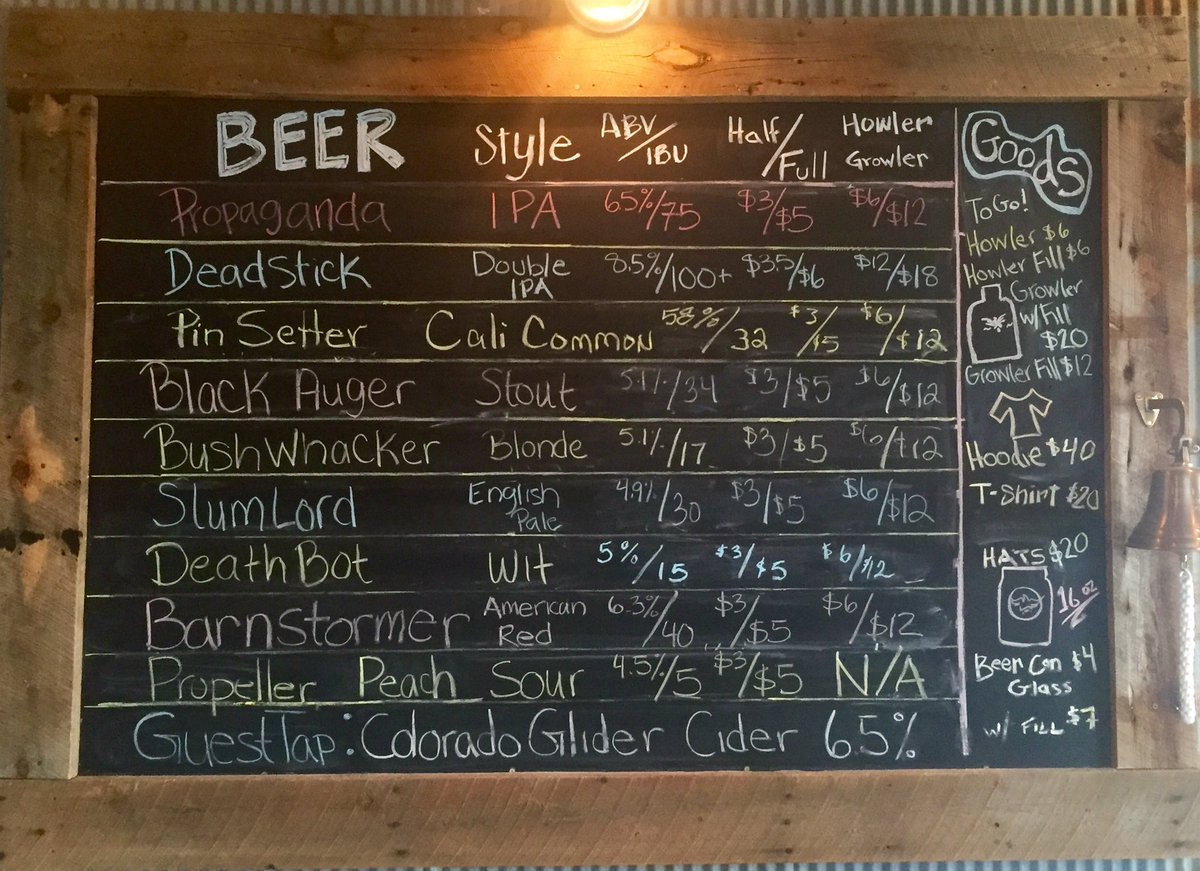 BEER Style ABV/IBU Half/Full Howler Growler
Propaganda IPA 65%/75 $3/$5 $6/$12
DeadStick Double IPA 8.5%/100+ $3.5/$6 $12/$18
Pin Setter Cali Common 58%/32 $3/$5 $6/$12
Black Auger Stout 5.1%/34 $3/$5 $6/$12
BushWhacker Blonde 5.1%/17 $3/$5 $6/$12
SlumLord English Pale 4.9%/30 $3/$5 $6/$12
Death Bot Wit 5%/15 $3/$5 $6/$12
Barnstormer American Red 6.3%/40 $3/$5 $6/$12
Propeller Peach Sour 4.5%/5 $3/$5 N/A
Guest Tap: Colorado Glider Cider 6.5%
Goods
To Go!
Howler $6
Howler Fill $6
Growler
w/Fill
$20
Growler Fill $12
Hoodie $40
T-Shirt $20
HATS $20
16 oz
Beer Can $4
Glass
w/ Fill $7